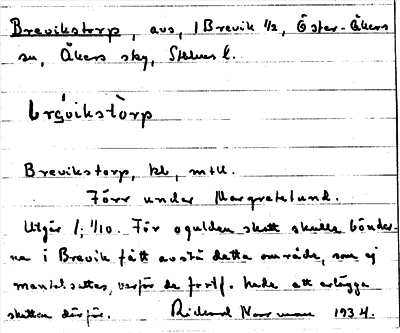 Brevikstorp, avs, 1 Brevik 1/2, Öster-Åkers
sn, Åkers skg, Sthlms l.
brévikstòrp
Brevikstorp, bl, mtl.
Förr under Margretelund.
Utgår 1; 1/10. För ogulden skatt skulle bönder-
na i Brevik fått avstå detta område, som ej
mantalsattes, varför de fortf. hade att erlägga
skatten därför. Rickard Norrman 1934.